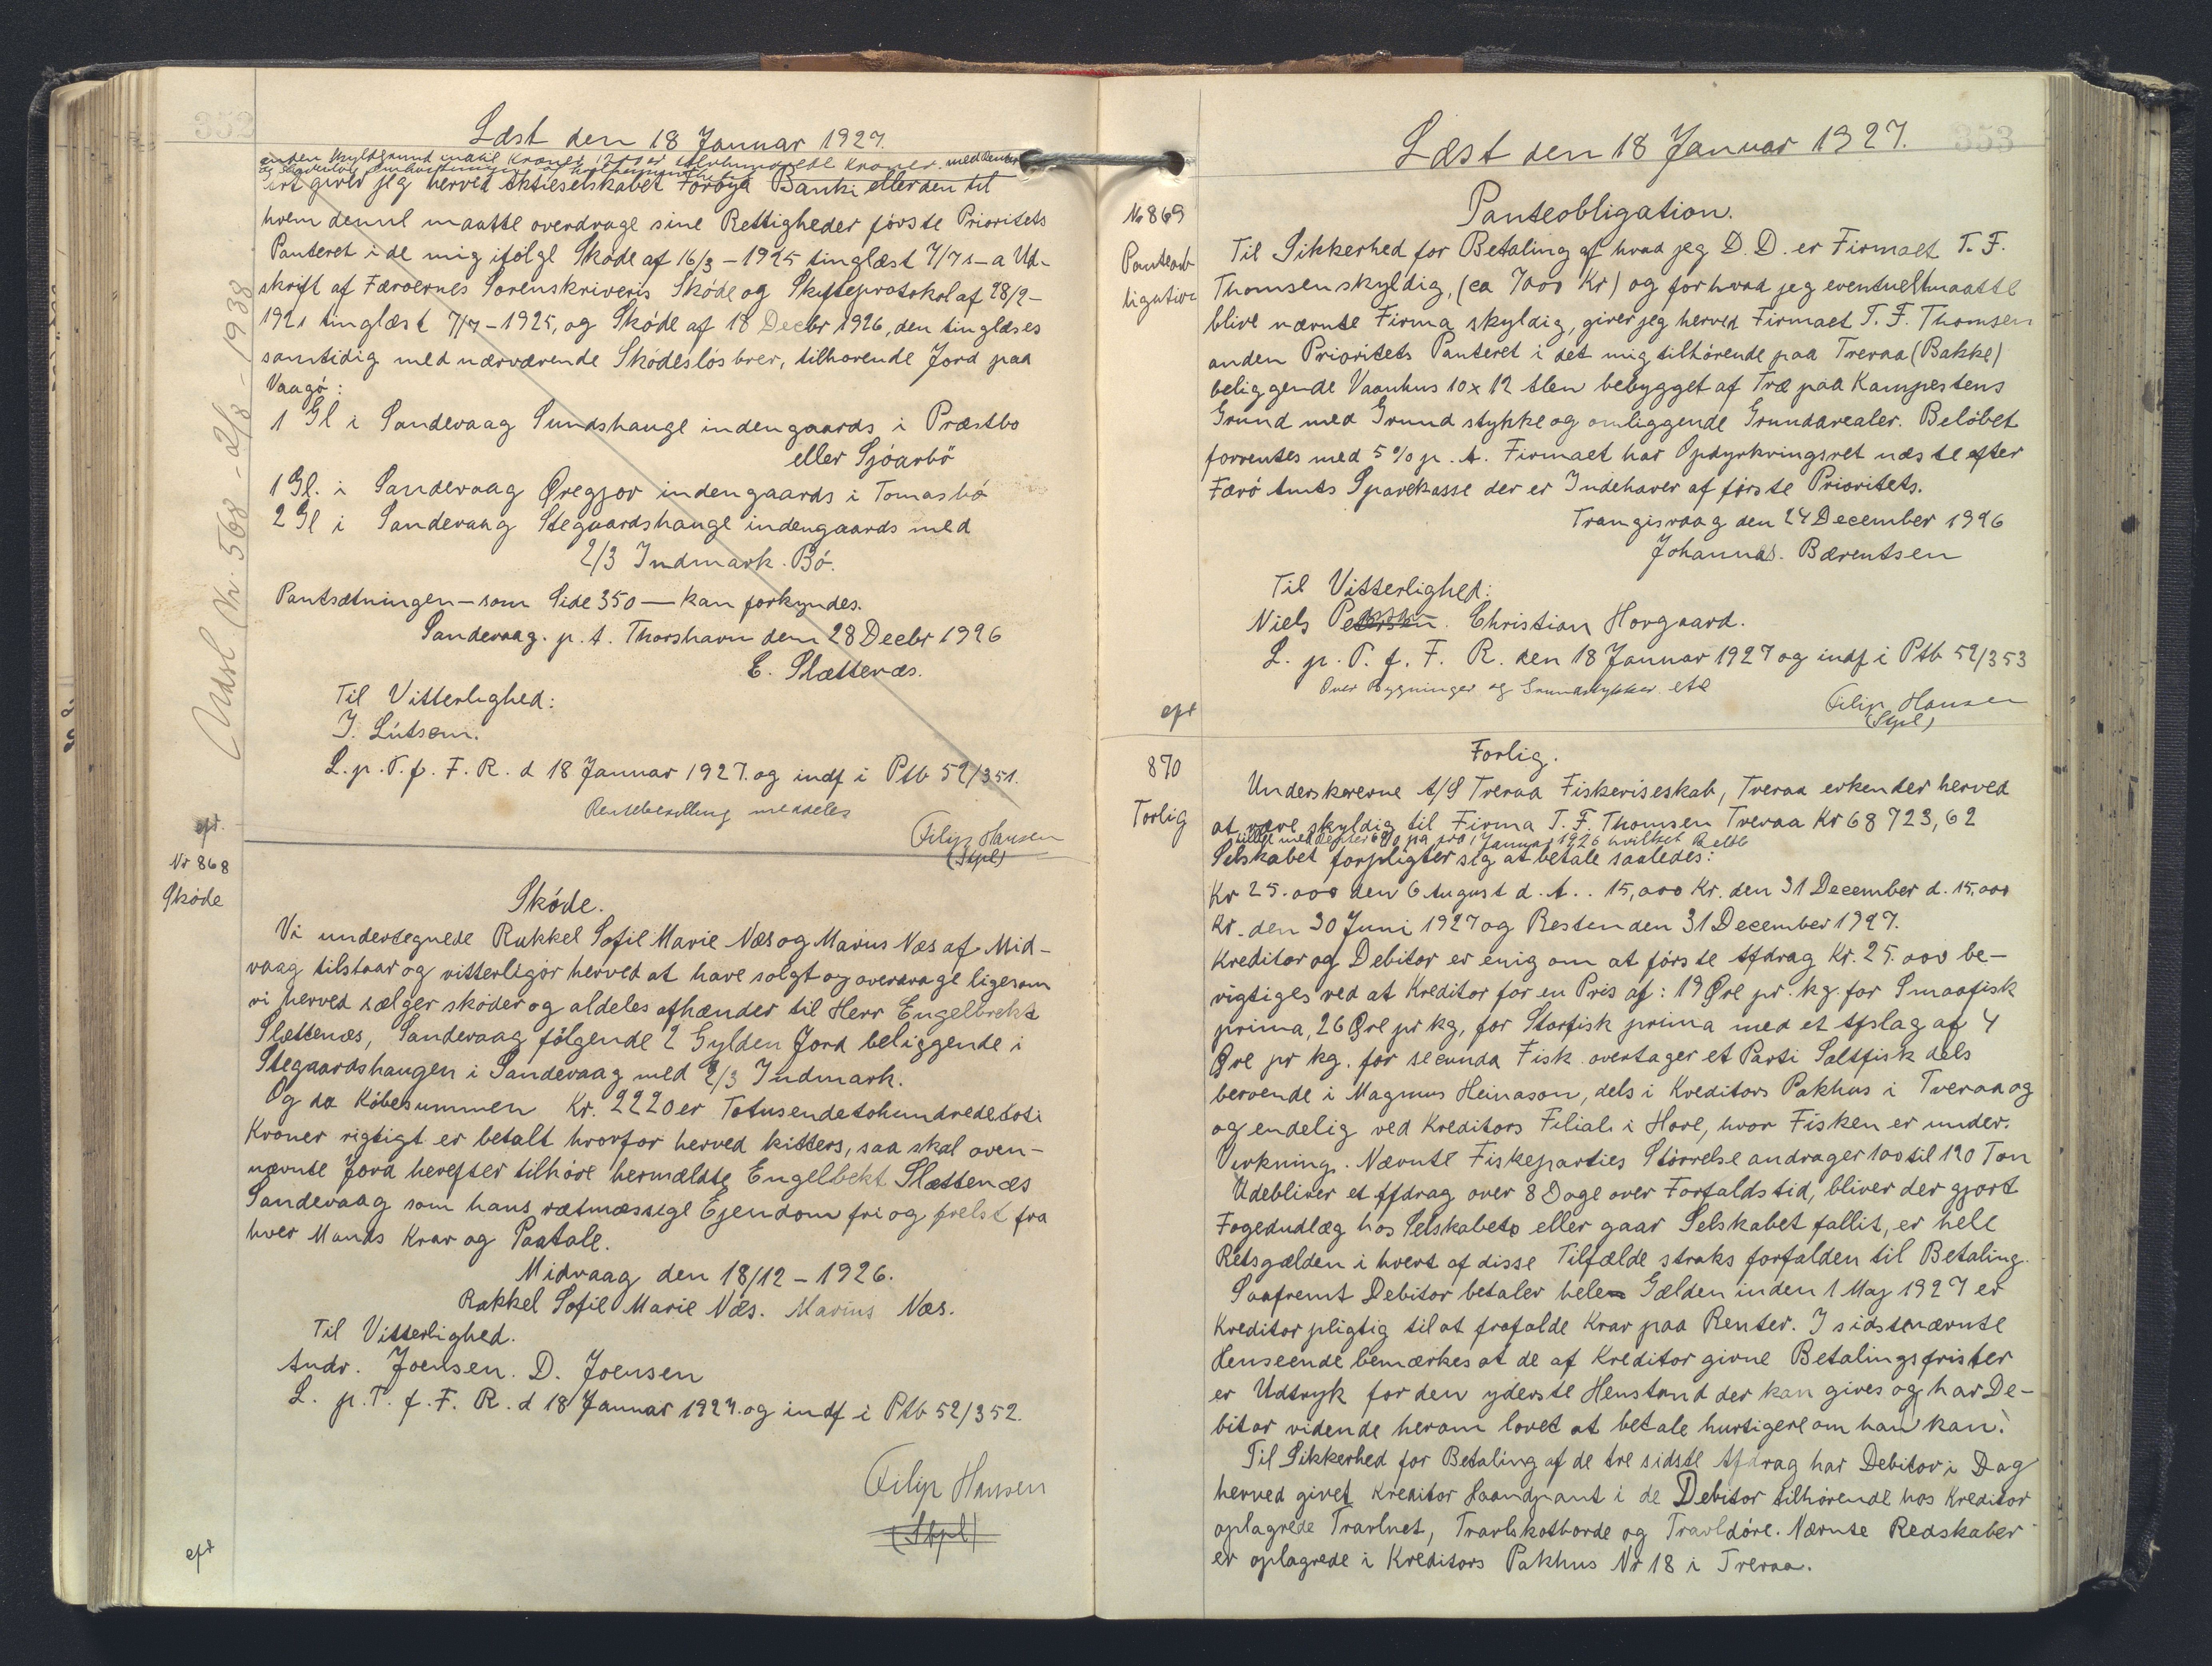 352
Læst den 18 Januar 1927.
anden Skyldgrund indtil Kroner 1200 er Tolvhundrede Kroner. med Renter
og skadesløs
giver jeg herved Aktieselskabet Foroya Banki eller den til
hvem denne maatte overdrage sine Rettigheder förste Prioritets
Panteret i de mig ifölge Sköde af 16/3 - 1925 tinglæst 7/7 s-a Ud-
skrift af Færöernes Sorenskriveris Sköde og Skifteprotokol af 28/2-
1921 tinglæst 7/7 - 1925, og Sköde af 18 Decbr 1926, den tinglæses
samtidig med nærværende Sködeslösbrev, tilhorende Jord paa
Vaagö:
1 Gl i Sandevaag Sundshauge indengaards i Præstbo
eller Sjóarbö
1 Gl. i Sandevaag Øregjov indengaards i Tomasbö
2 Gl i Sandevaag Stegaardshauge indengaards med
2/3 Indmark. Bö.
Pantsætningen - som Side 350 - kan forkyndes.
Sandevaag. p. t. Thorshavn den 28 Decbr 1926
E. Slættenæs.
Til Vitterlighed:
J. Lützen.
L. p. T. f. F. R. d 18 Januar 1927. og indf i Ptb 52/351.
Rentebevilling meddeles
Filip Hansen
(Stpl)
Udsl. Nr. 568 - 2/8 - 1938
eft.
Nr 868
Sköde
Sköde.
Vi undertegnede Rakkel Sofie Marie Næs og Marius Næs af Mid-
vaag tilstaar og vitterligör herved at have solgt og overdrage ligesom
vi herved sælger skoder og aldeles afhænder til Herr Engelbrekt
Slættenæs, Sandevaag fölgende 2 Gylden Jord beliggende i
Stegaardshaugen i Sandevaag med 2/3 Indmark.
Og da Köbesummen Kr. 2220 er Totusendetohundredetoti
Kroner rigtigt er betalt hvorfor herved kitters, saa skal oven-
nævnte Jord herefter tilhöre bemældte Engelbekt Slættenæs
Sandevaag som hans retmæssige Ejendom fri og frelst fra
hver Mands Krav og Paatale.
Midvaag den 18/12 - 1926.
Rakkel Sofie Marie Næs. Marius Næs.
Til Vitterlighed.
Andr. Joensen. D. Joensen
L. p. T. f. F. R. d 18 Januar 1927. og indf i Ptb 52/352.
Filip Hansen
(Stpl)
eft
353
Læst den 18 Januar 1927.
No 869
Panteob
ligation
Panteobligation.
Til Sikkerhed for Betaling af hvad jeg D. D. er Firmaet T. F.
Thomsen skyldig, (ca 7000 Kr) og for hvad jeg eventuelt maatte
blive nævnte Firma skyldig, giver jeg herved Firmaet T. F. Thomsen
anden Prioritets Panteret i det mig tilhörende paa Tveraa (Bakke)
beliggende Vaanhus 10 x 12 Alen bebygget af Træ paa Kampestens
Grund med Grund stykke og omliggende Grundarealer. Belöbet
forrentes med 5% p. A. Firmaet har Opdyrkringsret næste efter
Færö Amts Sparekasse der er Indehaver af förste Prioritets.
Trangisvaag den 24 December 1926
Johannas. Bærentsen
Til Vitterlighed:
Niels Petersen. Christian Hovgaard.
L. p. T. f. F. R. den 18 Januar 1927 og indf i Ptb 52/353
Over Bygninger og Grundstykker etc
Filip Hansen
(Stpl)
eft
870
Forlig
Forlig.
Underskrererne A/S Tveraa Fiskeriseskab, Tveraa erkender herved
at være skyldig til Firma T. F. Thomsen Tveraa Kr 68 723,62
tillige med Renter 6% pa fra 1 Januar 1926 hvilket Belöb
Selskabet forpligter sig at betale saaledes:
Kr 25.000 den 6 August d. A.. 15,000 Kr. den 31 December d. 15.000
Kr. den 30 Juni 1927 og Resten den 31 December 1927.
Kreditor og Debitor er enig om at förste Afdrag Kr. 25.000 be-
rigtiges ved at Kreditor for en Pris af: 19 Øre pr. kg. for Smaafisk
prima, 26 Øre pr kg, for Storfisk prima med et Afslag af 4
Øre pr kg. for secunda Fisk overtager et Parti Saltfisk dels
beroende i Magnus Heinason, dels i Kreditors Pakhus i Tveraa og
og endelig ved Kreditors Filiale i Hove, hvor Fisken er under.
Virkning. Nævnte Fiskeparties Störrelse andrager 100 til 120 Ton
Udebliver et Afdrag over 8 Dage over Forfaldstid, bliver der gjort
Fogedudlæg hos Selskabet eller gaar Selskabet fallit, er hele
Retsgælden i hvert af disse Tilfælde straks forfalden til Betaling.
Saafremt Debitor betaler hele Gælden inden 1 May 1927 er
Kreditor pligtig til at frafalde Krav paa Renter. I sidstnævnte
Henseende bemærkes at de af Kreditor givne Betalingsfrister
er Udtryk for den yderste Henstand der kan gives og har De-
bitor vidende herom lovet at betale hurtigere om han kan.
Til Sikkerhed for Betaling af de tre sidste Afdrag har Debitor i Dag
herved givet Kreditor Haandpant i de Debitor tilhörende hos Kreditor
oplagrede Travlnet, Travlskotborde og Travldöre. Nævnte Redskaber
er oplagrede i Kreditors Pakhus Nr 18 i Tveraa.